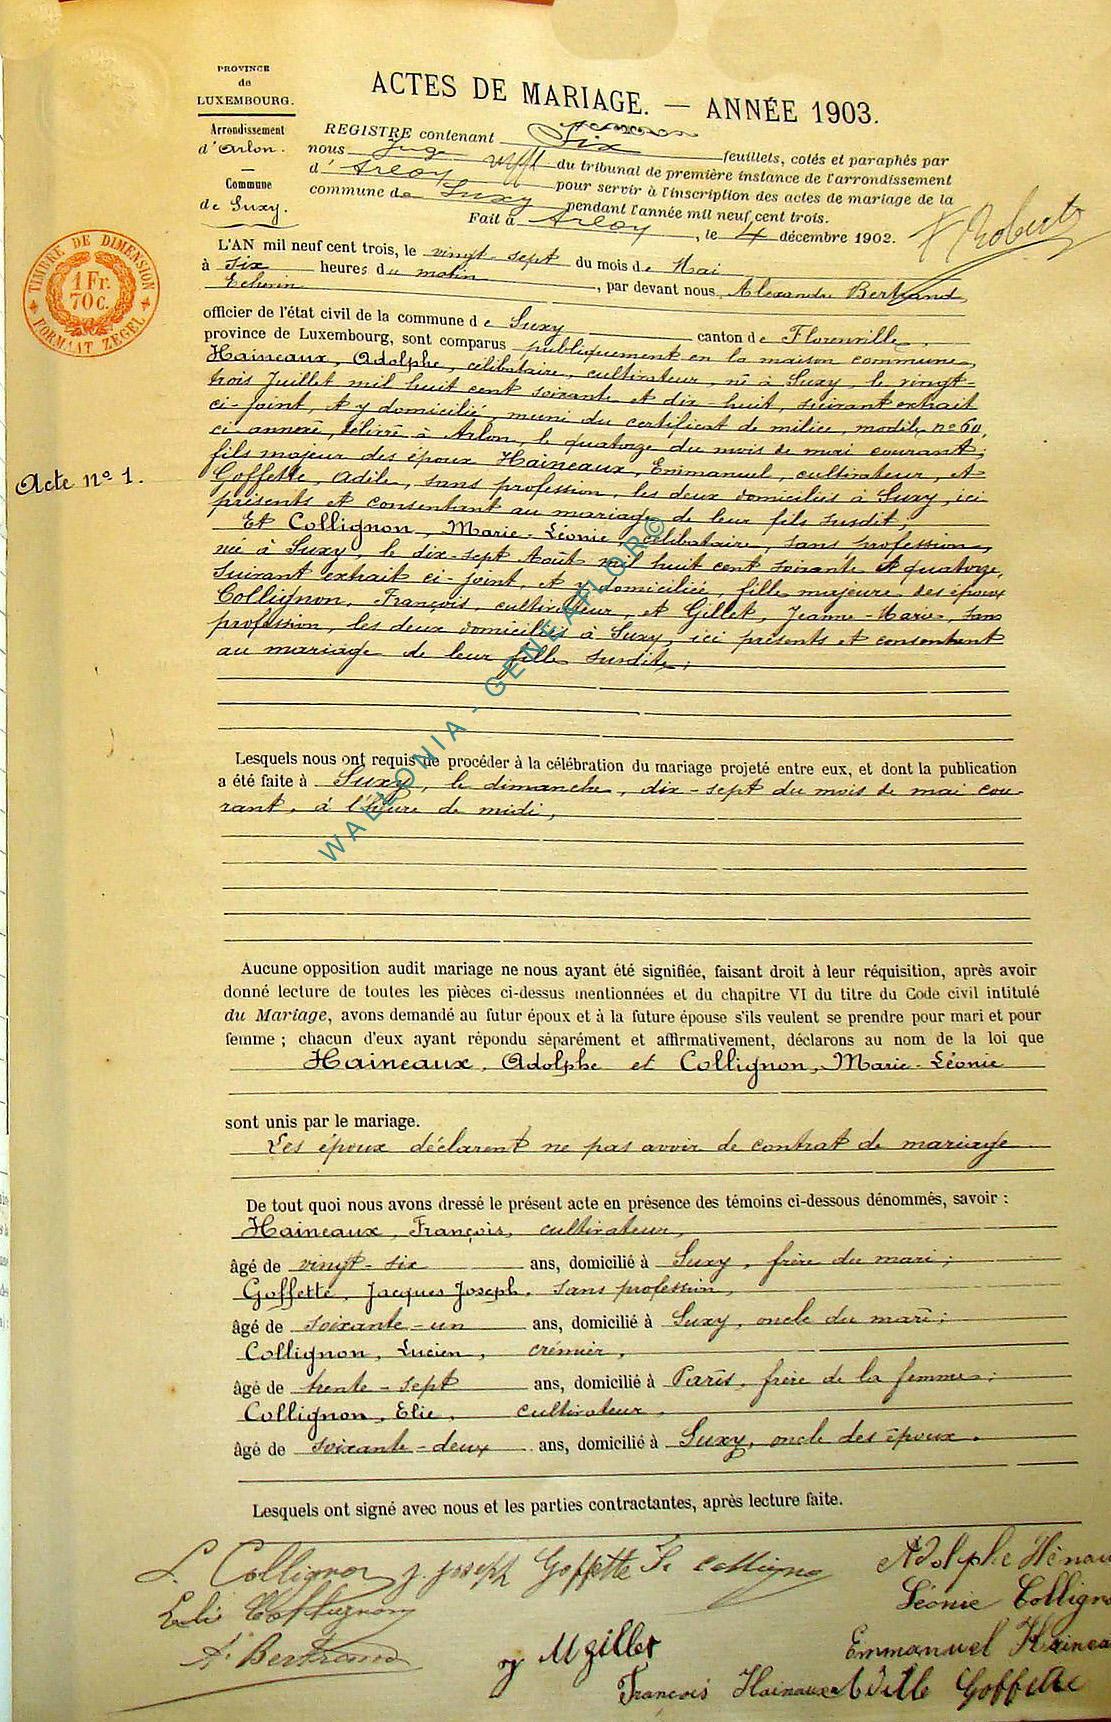 PROVINCE
de
LUXEMBOURG.
Arrondissement
d'Arlon.
Commune
de Suxy.
ACTES DE MARIAGE. — ANNÉE 1903.
REGISTRE contenant Six feuillets, cotés et paraphés par
nous Juge du tribunal de première instance de l'arrondissement
d'Arlon pour servir à l'inscription des actes de mariage de la
commune de Suxy pendant l'année mil neuf cent trois.
Fait à Arlon, le 4 décembre 1902.
TIMBRE DE DIMENSION
1 Fr.
70 c.
FORMAAT ZEGEL
L'AN mil neuf cent trois, le vingt-sept du mois de Mai
à six heures du matin, par devant nous, Alexandre Bertrand,
Echevin
officier de l'état civil de la commune de Suxy canton de Florenville,
province de Luxembourg, sont comparus publiquement en la maison commune,
Haineaux, Adolphe, célibataire, cultivateur, né à Suxy, le vingt-
trois Juillet mil huit cent soixante et dix-huit, suivant extrait
ci-joint, et y domicilié, muni du certificat de milice, modèle n° 60,
ci annexé, délivré à Arlon, le quatorze du mois de mai courant;
fils majeur des époux Haineaux, Emmanuel, cultivateur, et
Goffette, Adèle, sans profession, les deux domiciliés à Suxy, ici
présents et consentant au mariage de leur fils susdit;
Acte n° 1.
Et Collignon, Marie-Léonie, célibataire, sans profession,
née à Suxy, le dix-sept Août mil huit cent soixante et quatorze,
suivant extrait ci-joint, et y domiciliée, fille majeure des époux
Collignon, François, cultivateur, et Gillet, Jeanne-Marie, sans
profession, les deux domiciliés à Suxy, ici présents et consentant
au mariage de leur fille susdite;
WALLONIA - GENEAFLOR©
Lesquels nous ont requis de procéder à la célébration du mariage projeté entre eux, et dont la publication
a été faite à Suxy, le dimanche, dix-sept du mois de mai cou-
rant, à l'heure de midi,
Aucune opposition audit mariage ne nous ayant été signifiée, faisant droit à leur réquisition, après avoir
donné lecture de toutes les pièces ci-dessus mentionnées et du chapitre VI du titre du Code civil intitulé
du Mariage, avons demandé au futur époux et à la future épouse s'ils veulent se prendre pour mari et pour
femme ; chacun d'eux ayant répondu séparément et affirmativement, déclarons au nom de la loi que
Haineaux, Adolphe et Collignon, Marie-Léonie
sont unis par le mariage.
Les époux déclarent ne pas avoir de contrat de mariage
De tout quoi nous avons dressé le présent acte en présence des témoins ci-dessous dénommés, savoir :
Haineaux, François, cultivateur,
âgé de vingt-six ans, domicilié à Suxy, frère du mari;
Goffette, Jacques Joseph, sans profession,
âgé de soixante-un ans, domicilié à Suxy, oncle du mari;
Collignon, Lucien, crémier,
âgé de trente-sept ans, domicilié à Paris, frère de la femme;
Collignon, Elie, cultivateur,
âgé de soixante-deux ans, domicilié à Suxy, oncle des époux.
Lesquels ont signé avec nous et les parties contractantes, après lecture faite.
L. Collignon J. Joseph Goffette Fr Collignon Adolphe Hénau
Elie Collignon Léonie Collign
A. Bertrand J M gillet Emmanuel Hainea
François Hainaux Adèle Goffette